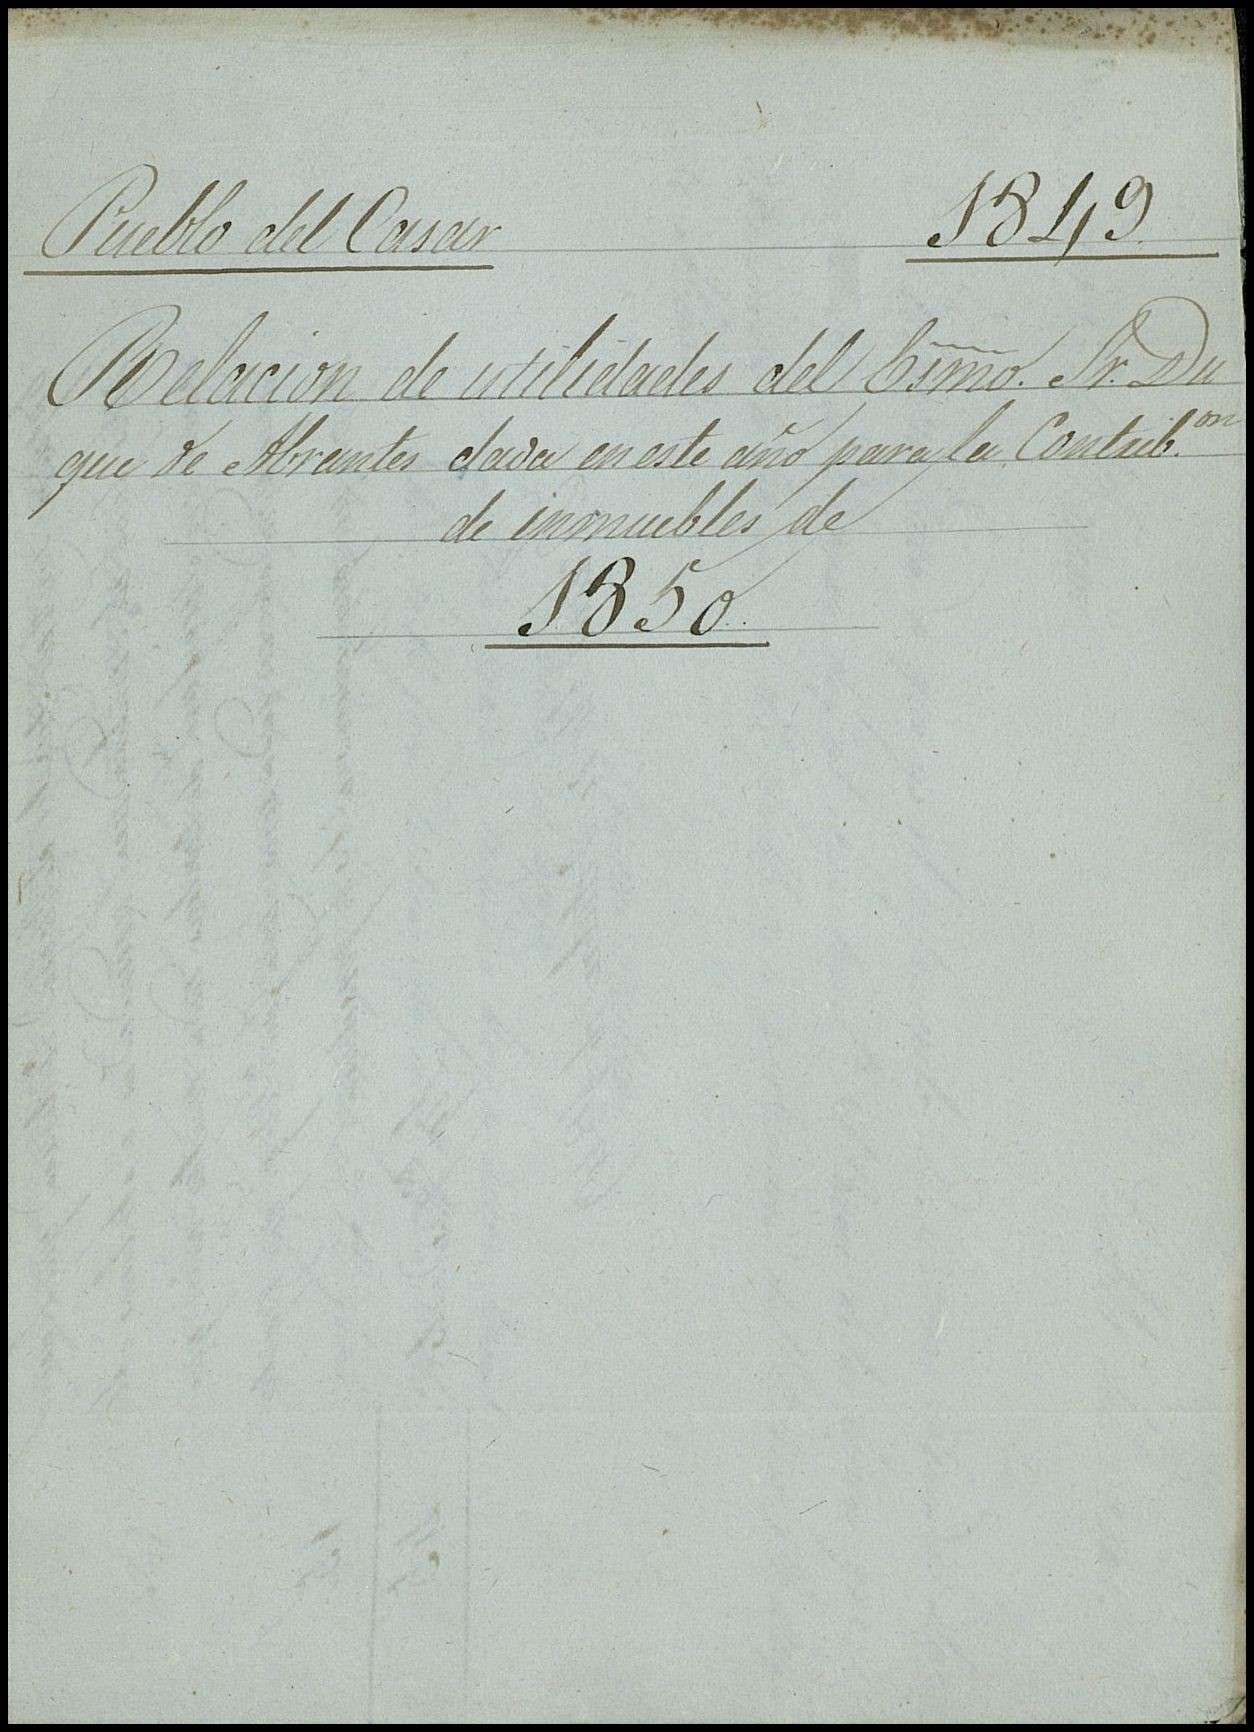 Pueblo del Casar 1849.
Relacion de utilidades del Esmo. Sr. Du
que de Abrantes dada en este año para la Contrib.on
de inmuebles de
1850.